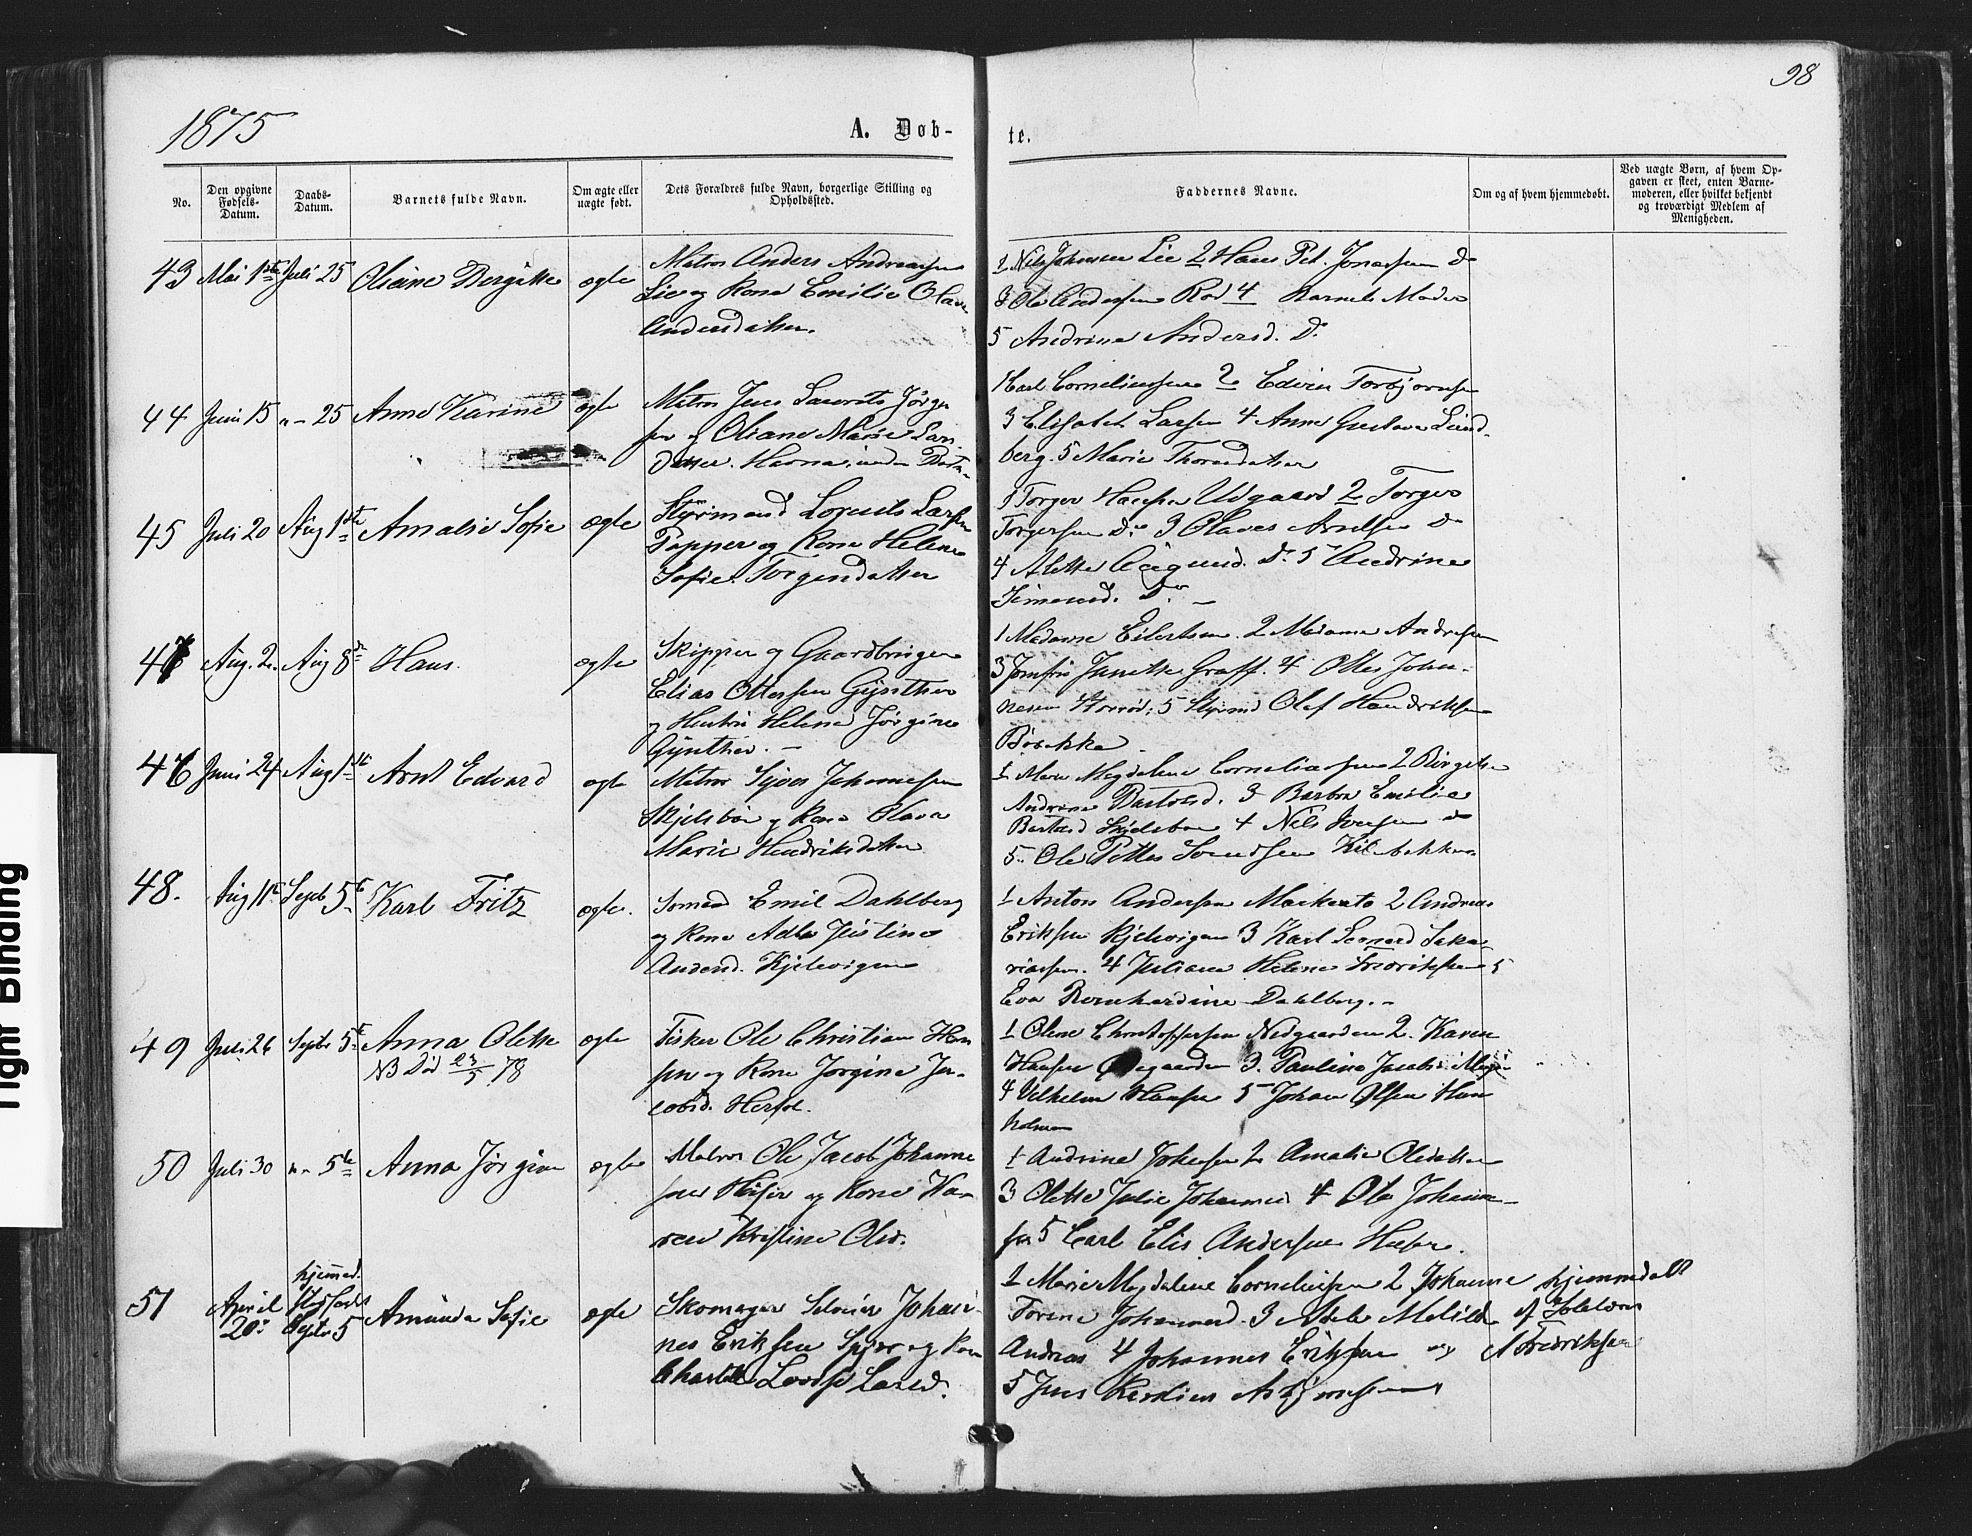 98
1875
A. Døb-
te.
No.
Den opgivne Fødsels-Datum.
Daabs-Datum.
Barnets fulde Navn.
Om ægte eller uægte født.
Dets Forældres fulde Navn, borgerlige Stilling og Opholdssted.
Faddernes Navne.
Om og af hvem hjemmedøbt.
Ved uægte Børn, af hvem Op-
gaven er skeet, enten Barne-
moderen, eller hvilket bekjendt
og troværdigt Medlem af
Menigheden.
43 Mai 1ste Juli 25 Oleine Bergitte ægte
Matros Anders Andreassen
Lie og Kone Emilie Olava
Andersdatter.
1 Nils Johansen Lie 2 Hans Pet. Jonassen do
3 Ole Andersen Rød 4 Barnets Moder
5 Andrine Andersd. Do
44 Juni 15 "-25 Anne Karine ægte
Matros Jens Lauritz Jørgen
sen og Oliane Marie Lars
datter. Havna, under
1 Carl Corneliussen 2 Edvin Torbjørnsen
3 Elisabet Larsen 4 Anne Gustava Lind-
berg. 5 Marie Thorsdatter
45 Juli 20 Aug 1ste Amalie Sofie ægte
Styrmand Lorents Larsen
Papper og Kone Helene
Sofie Torgersdatter
1 Torger Hansen Udgaard 2 Torger
Torgersen Do 3 Olaves Arntsen Do
4 Alette Aagund. Do 5 Andrine
Simensd. Do. –
47 Aug. 2. Aug 8de Hans. ægte
Skipper og Gaardbruger
Elias Ottersen Gynther
og Hustru Helene Jørgine
Gynther. –
1 Madame Eilertsen. 2 Madame Andresen
3 Jomfru Janette Graff. 4 Otter Johan-
nesen Horrød; 5 Styrmd Olaf Hendriksen
46 Juni 24 Aug 1ste Arnt Edvard ægte
Matros Syver Johannesen
Skjelsboe og Kone Olava
Marie Hendriksdatter
1 Marie Magdalene Corneliussen 2 Birgitte
Andrine Bastesd. 3 Barbra Emilie
Bastesd Skjelsboe 4 Nils Iversen do
5. Ole Petter Svendsen
48. Aug 11te Septb 5te Karl Fritz ægte.
Sømand Emil Dahlberg
og Kone Adle Justine
Andersd. Kjelvigen
1 Anton Andersen 2 Andreas
Eriksen Kjelvigen 3 Karl Leonard Saka-
riassen. 4 Juliane Helene Fredriksen 5
Eva Bernhardine Dahlberg. –
49 Juli 26 Septb 5te Anna Olette ægte
NB Død 23/5 78
Fisker Ole Christian Han
sen og Kone Jørgine Ja-
cobsd. Herføl.
1 Olene Christoffersen Nedgaarden 2. Karen
Hansen 3. Pauline Jacobs.
4 Vilhelm Hansen 5 Johan Olsen Hun
holmen
50 Juli 30 "- 5te Anna Jørgine ægte
Matros Ole Jacob Johanne
sen og Kone Ka-
ren Kristine Olsd.
1 Andrine Johnsen 2 Amalie Olsdatter
3 Olette Julie Johannesd 4 Ole Johann-
sen 5 Carl Elis Andersen
51 April 20de hjemmed. Septb 5 Amanda Sofie ægte
Skomager Johan-
nes Eriksen Spjær og Kone
Charlotte Lovise Larsd.
1 Marie Magdalene Corneliussen 2 Johanne
Torine Johannesd. 3 Adele Matilde
Andreas 4 Johannes Eriksen
5 Jens Asbjørnsen
hjemmedøbt
af
A Fredriksen
Tight Binding